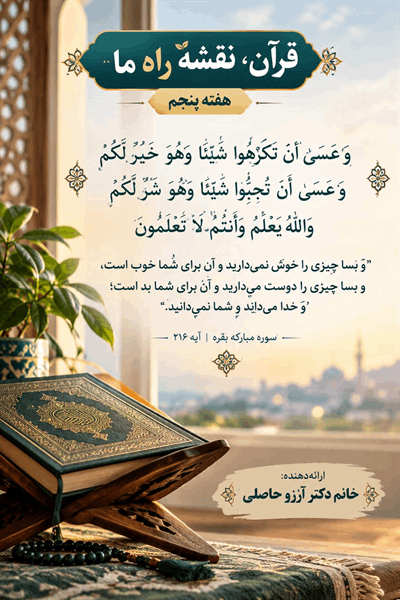 قرآن، نقشه راه ما
هفته پنجم
وَعَسَىٰ أَنْ تَكْرَهُوا شَيْئًا وَهُوَ خَيْرٌ لَكُمْ
وَعَسَىٰ أَنْ تُحِبُّوا شَيْئًا وَهُوَ شَرٌّ لَكُمْ
وَاللَّهُ يَعْلَمُ وَأَنْتُمْ لَا تَعْلَمُونَ
"وَ بسا چیزی را خوش نمی‌دارید و آن برای شُما خوب است،
و بسا چیزی را دوست می‌دارید و آن برای شما بد است؛
وَ خدا می‌داند وَ شما نمی‌دانید."
سوره مبارکه بقره | آیه ۲۱۶
ارائه‌دهنده:
خانم دکتر آرزو حاصلی